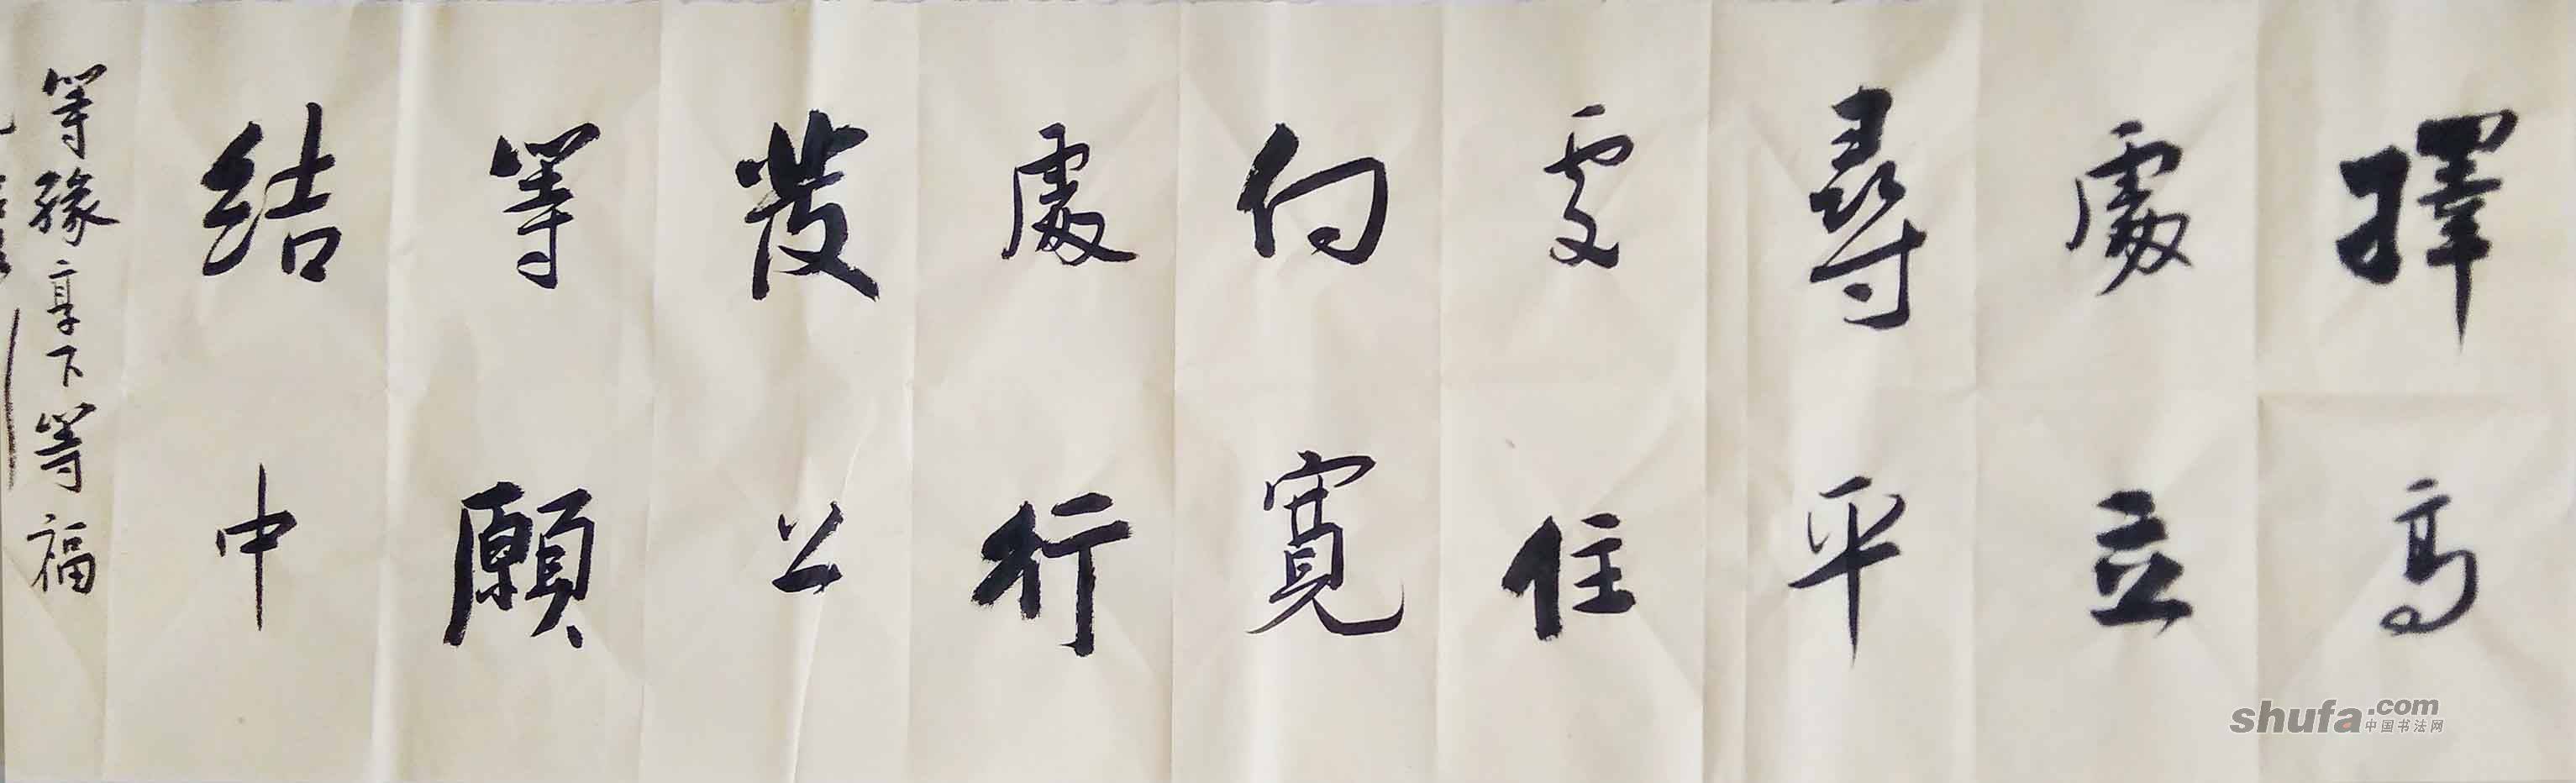 擇高
處立
尋平
處住
向寬
處行
發上
等願
結中
等緣享下等福
shufa.com
中国书法网